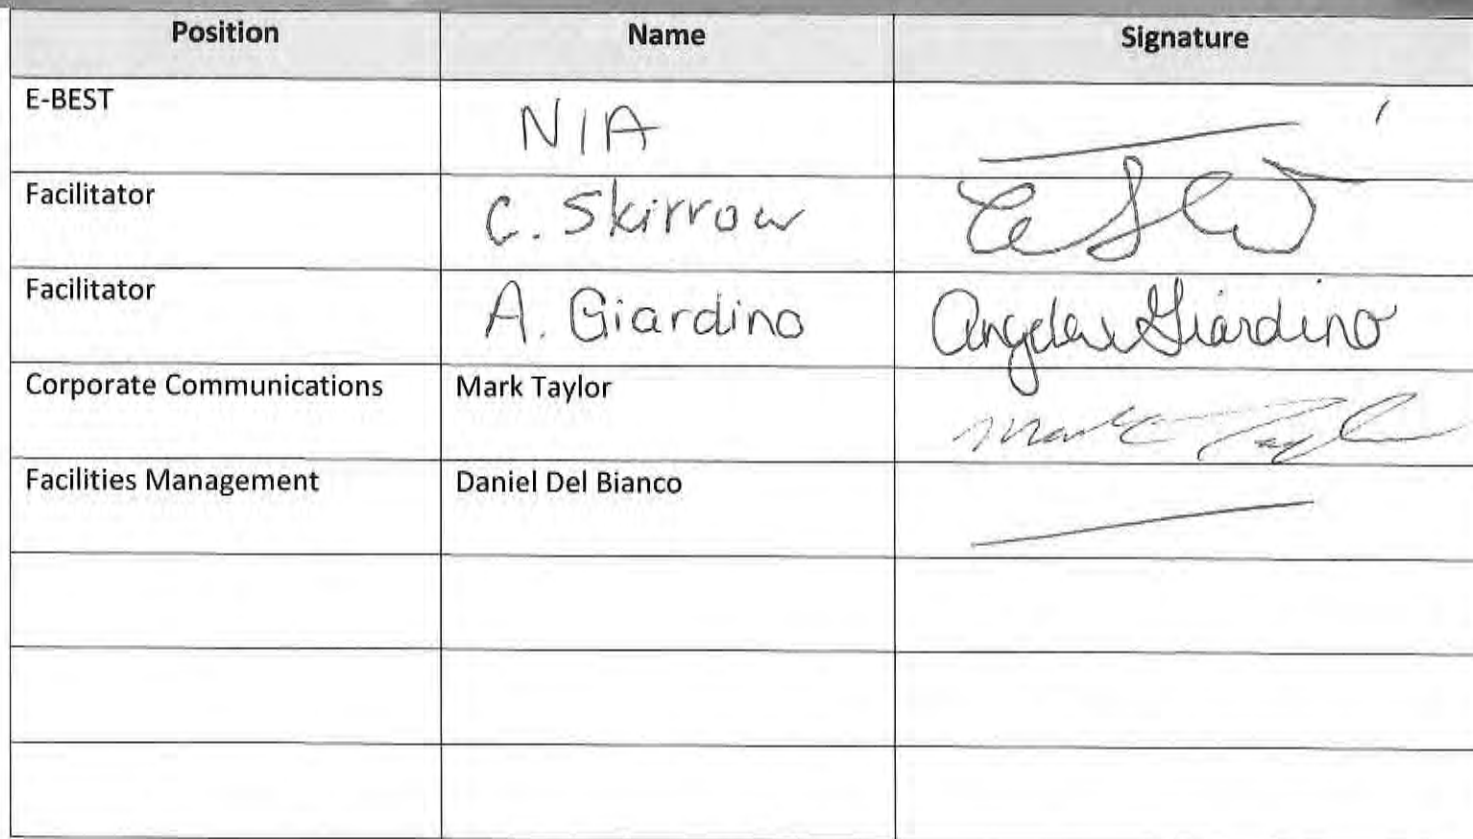 Position Name Signature
E-BEST N/A
Facilitator C. Skirrow
Facilitator A. Giardino Angela Giardino
Corporate Communications Mark Taylor Mark Taylor
Facilities Management Daniel Del Bianco